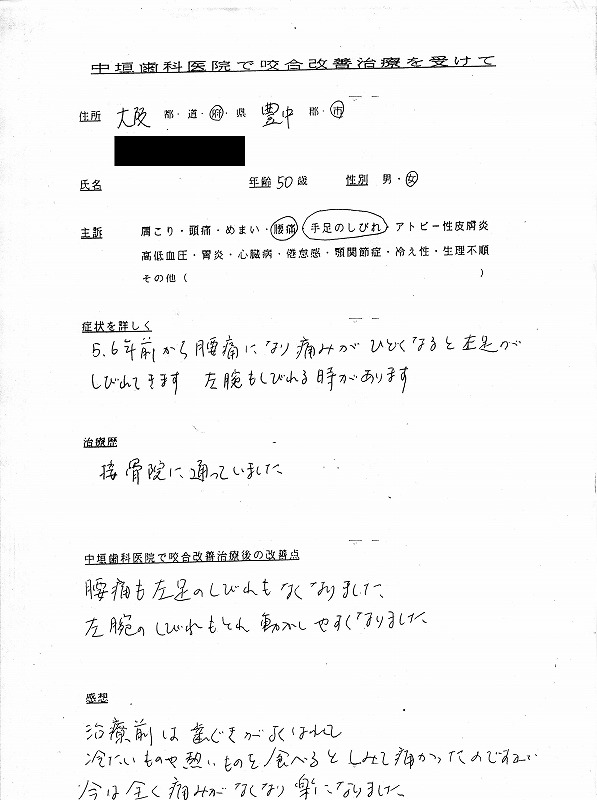 中垣歯科医院で咬合改善治療を受けて
住所 大阪 都・道・府・県 豊中 郡・市
氏名 年齢 50 歳 性別 男・女
主訴 肩こり・頭痛・めまい・腰痛・手足のしびれ・アトピー性皮膚炎
高低血圧・胃炎・心臓病・倦怠感・顎関節症・冷え性・生理不順
その他( )
症状を詳しく
5.6年前から腰痛になり痛みがひどくなると左足が
しびれてきます 左腕もしびれる時があります
治療歴
接骨院に通っていました
中垣歯科医院で咬合改善治療後の改善点
腰痛も左足のしびれもなくなりました、
左腕のしびれもとれ動かしやすくなりました、
感想
治療前は歯ぐきがよくはれて
冷たいものや熱いものを食べるとしみて痛かったのですが
今は全く痛みがなくなり楽になりました、